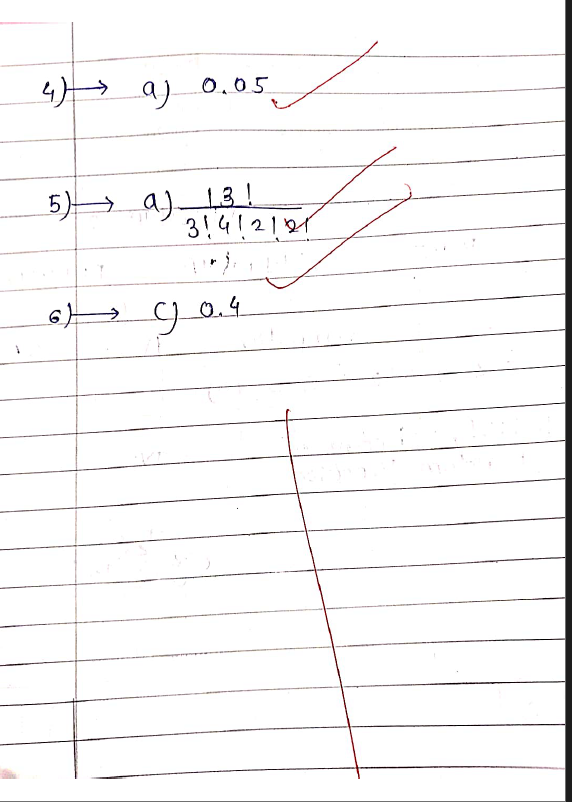 4)→ a) 0.05
5)→ a) 13!
3!4!2!2!
6)→ c) 0.4